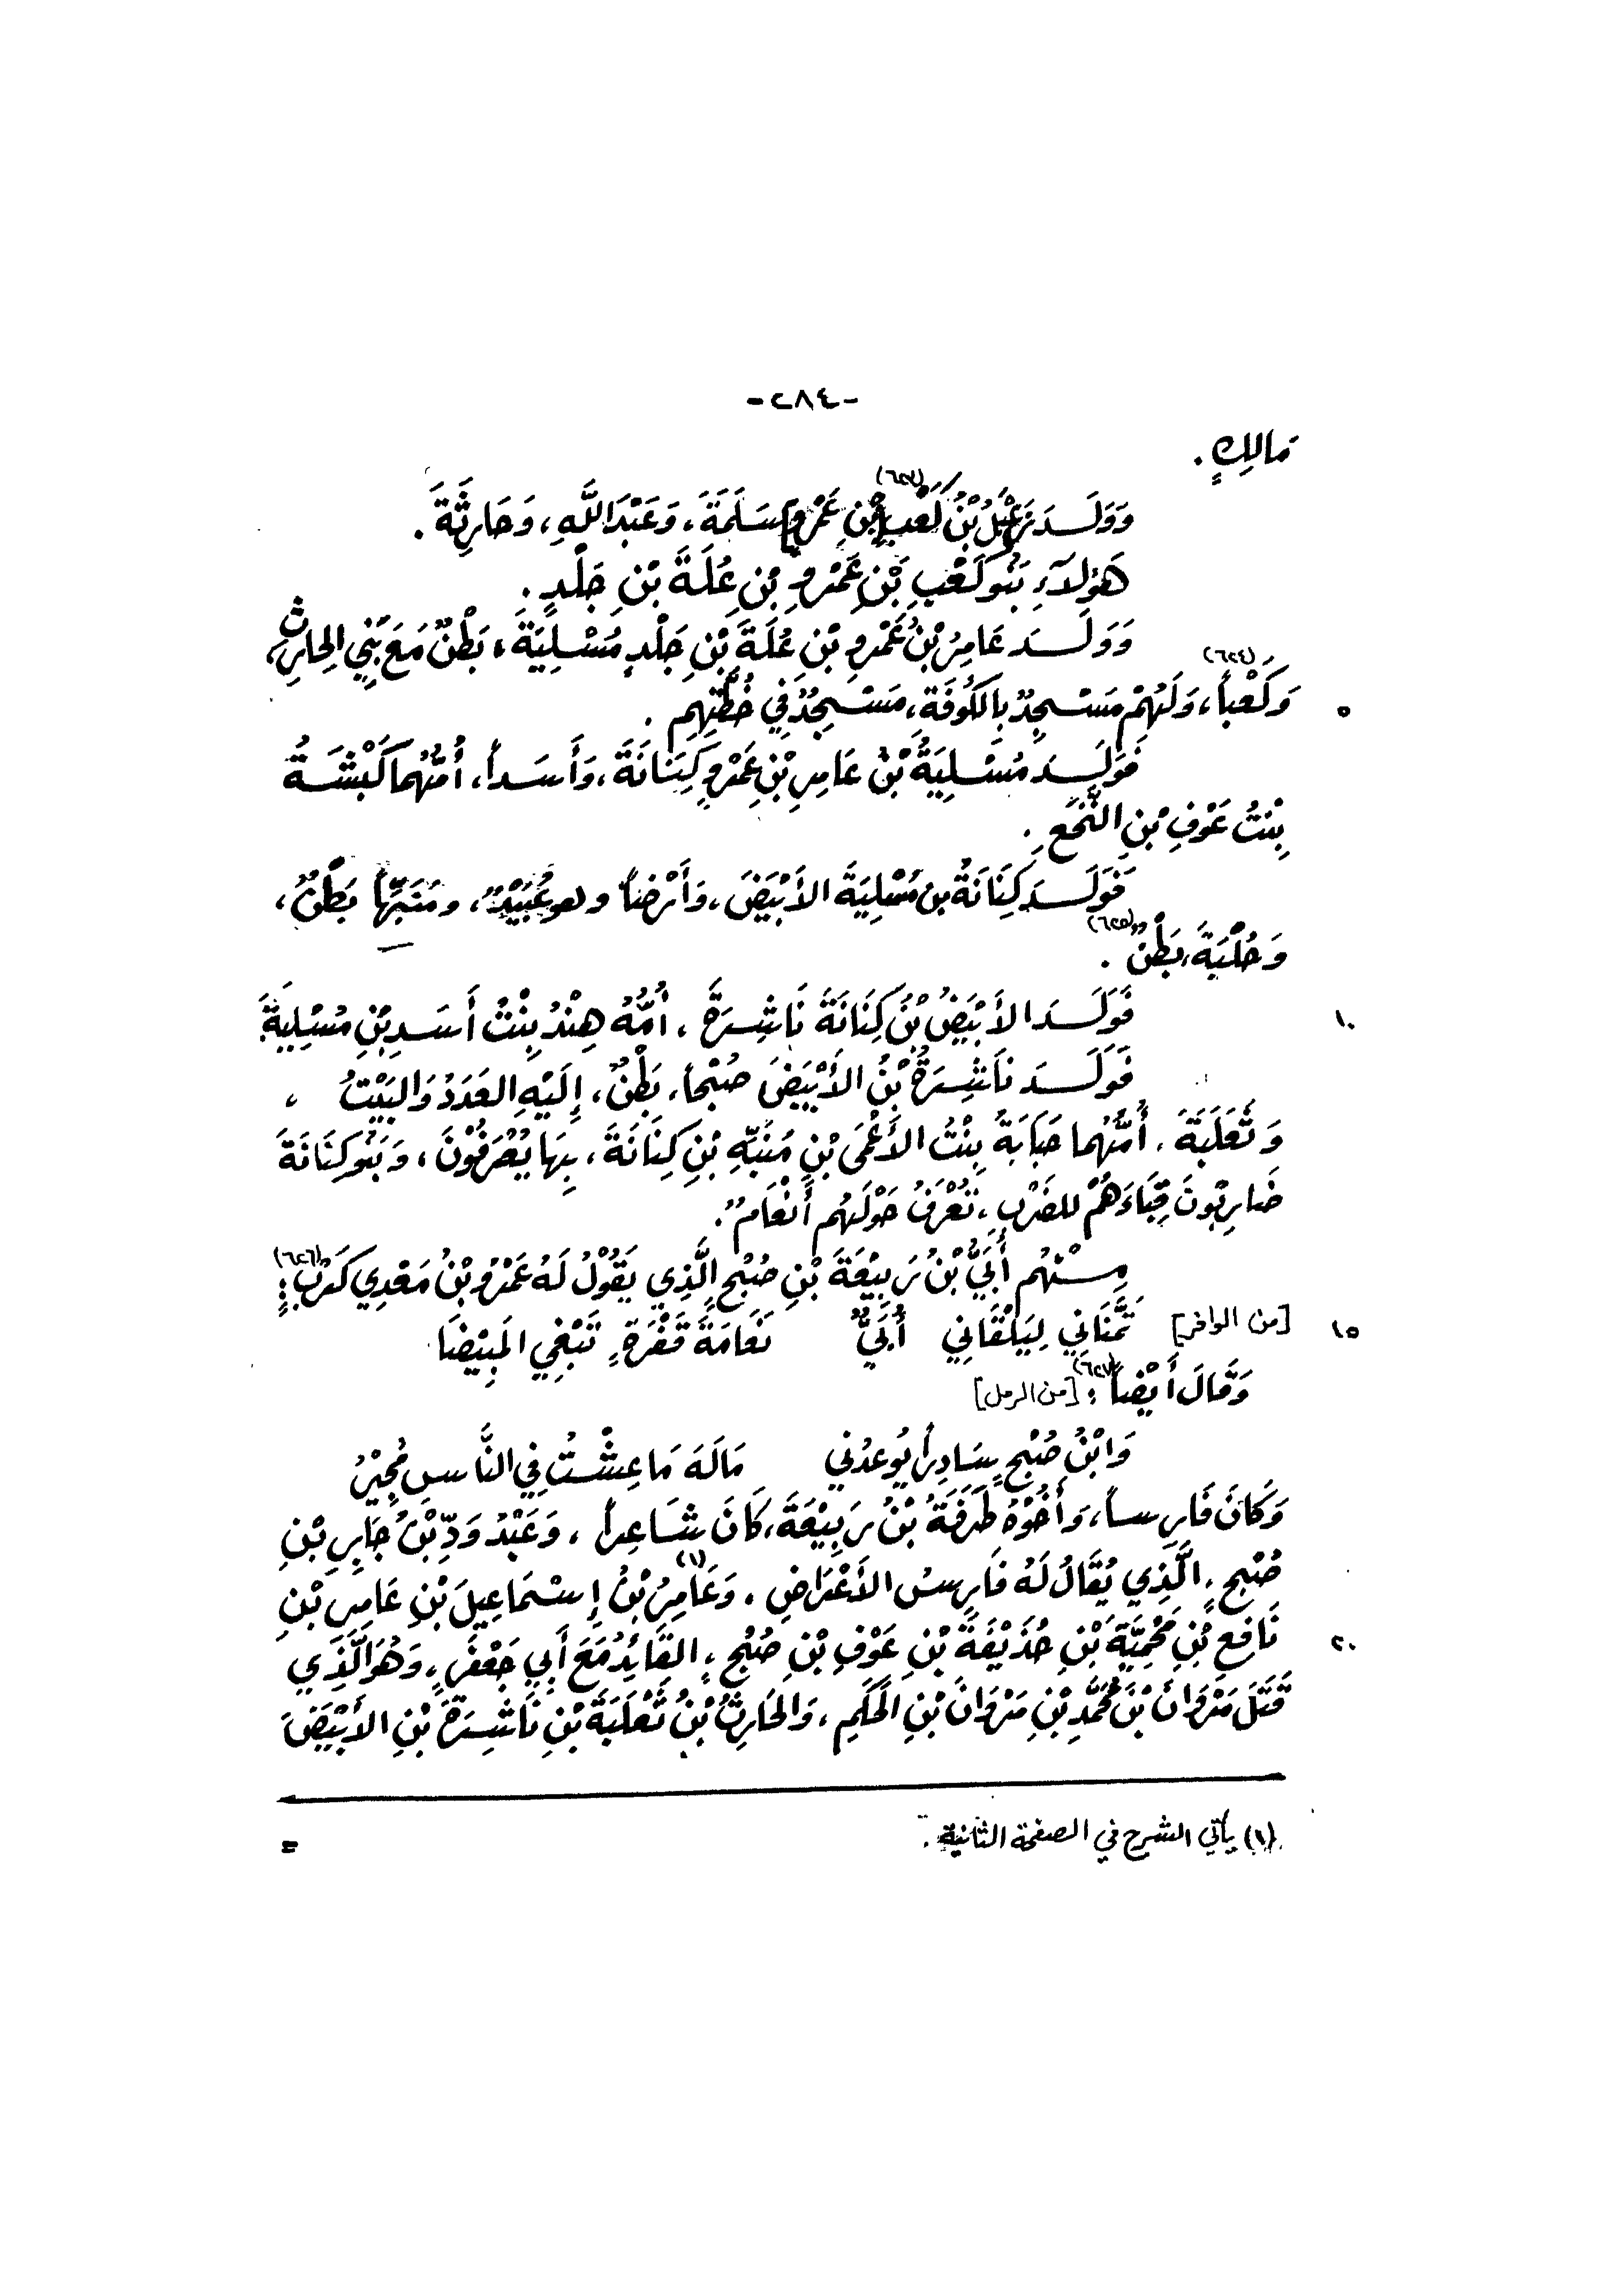 -٢٨٤-
مَالِكٍ.
وَوَلَدَ زَعْبَلُ بْنُ كَعْبِ [بْنِ عَمْرٍو] (٦٢٣) سَلَمَةَ، وَعَبْدَ اللَّهِ، وَحَارِثَةَ.
هَؤُلَاَءِ بَنُو كَعْبِ بْنِ عَمْرِو بْنِ عُلَةَ بْنِ جَلْدٍ.
وَوَلَدَ عَامِرُ بْنُ عَمْرِو بْنِ عُلَةَ بْنِ جَلْدٍ مُسْلِيَةَ، بَطْنٌ مَعَ بَنِي الحَارِثِ،
وَكَعْباً (٦٢٤)، وَلَهُمْ مَسْجِدٌ بِالكُوفَةِ، مَسْجِدٌ فِي خُطَّتِهِم. ٥
فَوَلَدَ مُسْلِيَةُ بْنُ عَامِرِ بْنِ عَمْرٍو كِنَانَةَ، وَأَسَداً، أُمُّهُمَا كَبْشَةُ
بِنْتُ عَوْفِ بْنِ النَّخَعِ.
فَوَلَدَ كِنَانَةُ بن مُسْلِيَةَ الأَبْيَضَ، وَأَرْضاً وهو عُبَيْدٌ، ومُنَبِّهاً بَطْنٌ،
وَحُلْبَةَ، بَطْنٌ (٦٢٥).
فَوَلَدَ الأَبْيَضُ بْنُ كِنَانَةَ نَاشِرَةَ، أُمُّهُ هِنْدُ بِنْتُ أَسَدِ بْنِ مُسْلِيَةَ. ١٠
فَوَلَدَ نَاشِرَةُ بْنُ الأَبْيَضِ صُبْحاً، بَطْنٌ، إِلَيْهِ العَدَدُ وَالبَيْتُ،
وَثَعْلَبَةَ، أُمُّهُمَا حَبَابَةُ بِنْتُ الأَعْمَى بْنِ مُنَبِّهِ بْنِ كِنَانَةَ، بِهَا يُعْرَفُوْنَ، وَبَنُو كِنَانَةَ
ضَارِبُونَ قِبَاءَهُمْ للضَرْبِ، تُعْرَفُ حَوْلَهُم أَنْعَامٌ.
مِنْهُم أُبَيُّ بْنُ رَبِيْعَةَ بْنِ صُبْحٍ الَّذِي يَقُوْلُ لَهُ عَمْرُو بْنُ مَعْدِي كَرِبَ (٦٢٦):
[من الوافر] تَمَّنَانِي لِيَلْقَانِي أُبَيٌّ نَعَامَةَ قَفْرَةٍ تَبْغِي المَبِيْضَا ١٥
وَقَالَ أَيْضاً (٦٢٧): [من الرمل]
وَابْنُ صُبْحٍ سَادِراً يُوعِدُني مَالَهُ مَا عِشْتُ فِي النَّاسِ مُجِيْرُ
وَكَانَ فَارِساً، وَأَخُوْهُ طَرَفَةُ بْنُ رَبِيْعَةَ، كَانَ شَاعِراً، وَعَبْدُ وَدِّ بْنُ جَابِرِ بْنِ
صُبْحٍ، الَّذِي يُقَالُ لَهُ فَارِسُ الأَعْرَاضِ. وَعَامِرُ (١) بْنُ إِسْمَاعِيلَ بْنِ عَامِرِ بْنِ
نَافِعِ بْنِ مَحْمِيَّةَ بْنِ حُذَيْفَةَ بْنِ عَوْفِ بْنِ صُبْحٍ، القَائِدُ مَعَ أَبِي جَعْفَرٍ، وَهُوَ الَّذِي ٢٠
قَتَلَ مَرْوَانَ بْنَ مُحَمَّدِ بْنِ مَرْوَانَ بْنِ الحَكَمِ، وَالحَارِثُ بْنُ ثَعْلَبَةَ بْنِ نَاشِرَةَ بْنِ الأَبْيَضَ
(١) يأتي الشرح في الصفحة الثانية. =